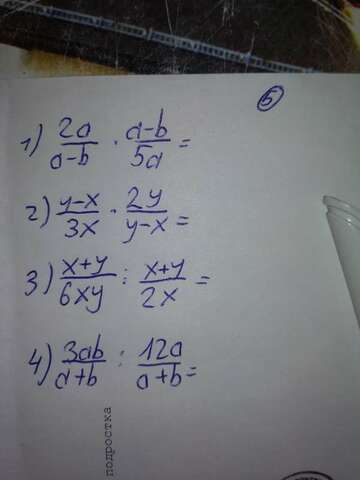 5
1) 2a/(a-b) · (a-b)/5a =
2) (y-x)/3x · 2y/(y-x) =
3) (x+y)/6xy : (x+y)/2x =
4) 3ab/(a+b) : 12a/(a+b) =
подростка